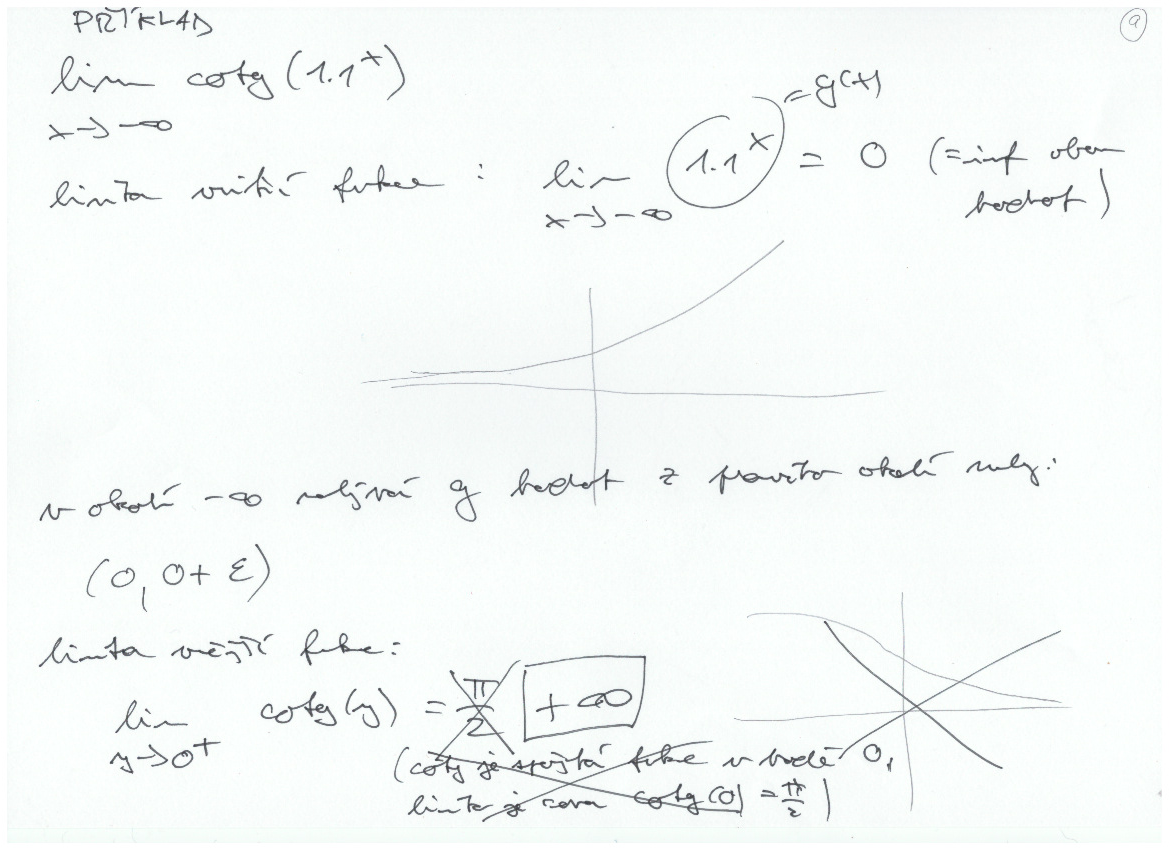 PŘÍKLAD
9
lim cotg (1.1^x)
x→ -∞
limita vnitřní funkce : lim 1.1^x = 0 (=inf oboru hodnot)
x→ -∞
= g(x)
v okolí -∞ nabývá g hodnot z pravého okolí nuly:
(0, 0+ ε)
limita vnější funkce:
lim cotg(y) = π/2 +∞
y→0+
(cotg je spojitá funkce v bodě 0,
limita je rovna cotg(0) = π/2)